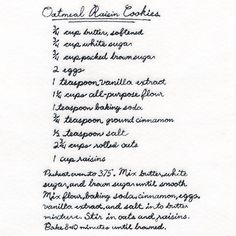 Oatmeal Raisin Cookies
3/4 cup butter, softened
3/4 cup white sugar
3/4 cup packed brown sugar
2 eggs
1 teaspoon vanilla extract
1 1/4 cups all-purpose flour
1 teaspoon baking soda
3/4 teaspoon ground cinnamon
1/2 teaspoon salt
2 3/4 cups rolled oats
1 cup raisins
Preheat oven to 375°. Mix butter, white
sugar, and brown sugar until smooth.
Mix flour, baking soda, cinnamon, eggs,
vanilla extract, and salt in to butter
mixture. Stir in oats and raisins.
Bake 8-10 minutes until browned.